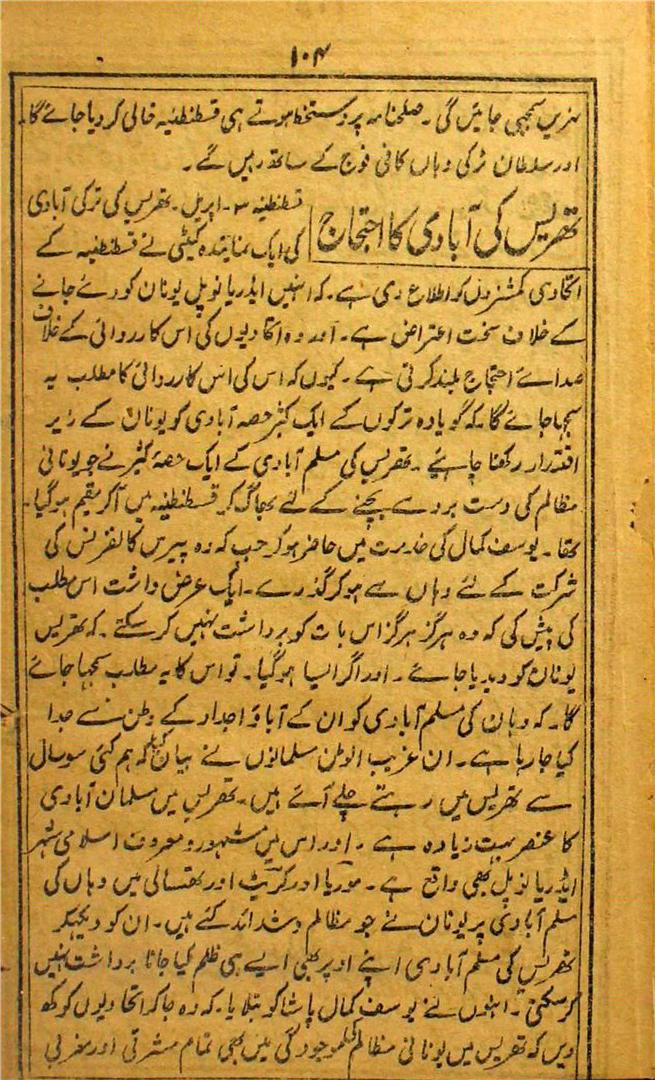 ۱۰۴
سزیں سمجھی جائیں گی ۔ صلحنامہ پر دستخط ہوتے ہی قسطنطنیہ خالی کر دیا جائے گا ۔
اور سلطان ٹرکی وہاں کافی فوج کے ساتھ رہیں گے ۔
تھریس کی آبادی کا احتجاج
قسطنطنیہ ۳ ۔ اپریل ۔ تھریس کی ترکی آبادی
کی ایک نمایندہ کمیٹی نے قسطنطنیہ کے
اتحادی کمشنروں کو اطلاع دی ہے ۔ کہ انہیں ایڈریا نوپل یونان کو دئے جانے
کے خلاف سخت اعتراض ہے ۔ اور وہ اتحادیوں کی اس کارروائی کے خلاف
صدائے احتجاج بلند کرتی ہے ۔ کیوں کہ اس کی اس کارروائی کا مطلب یہ
سمجہا جائے گا ۔ کہ گویا وہ ترکوں کے ایک کثیر حصہ آبادی کو یونان کے زیر
اقتدار رکھنا چاہئیے ۔ تھریس کی مسلم آبادی کے ایک حصۂ کثیر نے جو یونانی
مظالم کی دست برد سے بچنے کے لئے بھاگ کر قسطنطنیہ میں آکر مقیم ہوگیا ۔
تھا ۔ یوسف کمال کی خدمت میں حاضر ہوکر جب کہ وہ پیرس کانفرنس کی
شرکت کے لئے وہاں سے ہوکر گذرے ۔ ایک عرض داشت اس مطلب
کی پیش کی کہ وہ ہرگز ہرگز اس بات کو برداشت نہیں کر سکتے ۔ کہ تھریس
یونان کو دیدیا جائے ۔ اور اگر ایسا ہوگیا ۔ تو اس کا یہ مطلب سمجہا جائے
گا ۔ کہ وہاں کی مسلم آبادی کو ان کے آباؤ اجداد کے وطن سے جدا
کیا جا رہا ہے ۔ ان غریب الوطن مسلمانوں نے بیان کیا کہ ہم کئی سو سال
سے تھریس میں رہتے چلے آئے ہیں ۔ تھریس میں مسلمان آبادی
کا عنصر بہت زیادہ ہے ۔ اور اس میں مشہور و معروف اسلامی شہر
ایڈریا نوپل بھی واقع ہے ۔ موریا اور کریٹ اور تھسالی میں وہاں کی
مسلم آبادی پر یونان نے جو مظالم و شدائد کئے ہیں ۔ ان کو دیکہکر
تھریس کی مسلم آبادی اپنے اوپر بھی ایسے ہی ظلم کیا جانا برداشت نہیں
کر سکتی ۔ انہوں نے یوسف کمال پاشا کو بتلایا ۔ کہ وہ جاکر اتحادیوں کو کہ
دیں کہ تھریس میں یونانی مظالم کی موجودگی میں بھی تمام مشرقی اور مغربی